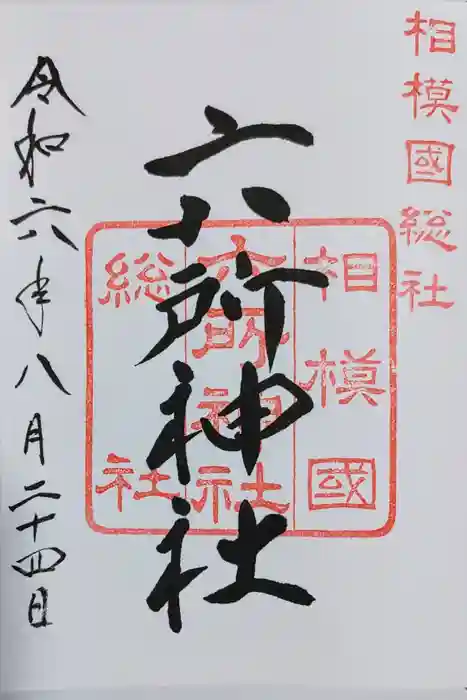 相模國総社
六所神社
相模國
六所神社
総社
令和六年八月二十四日